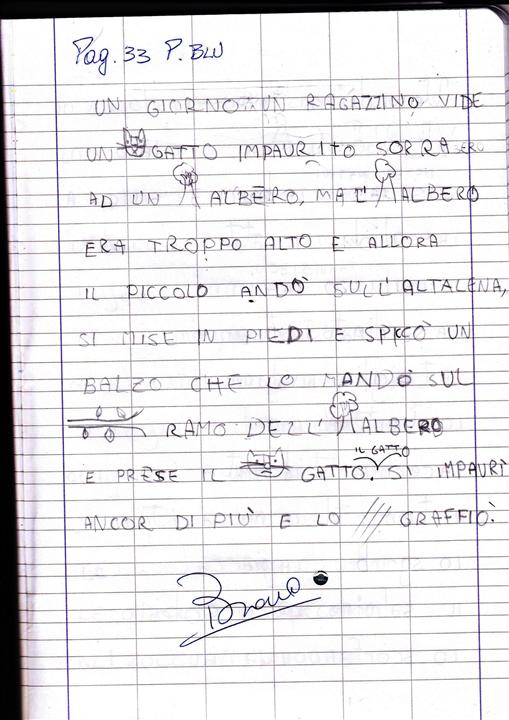 Pag. 33 P. BLU
UN GIORNO UN RAGAZZINO VIDE
UN GATTO IMPAURITO SOPRA
AD UN ALBERO, MA L'ALBERO
ERA TROPPO ALTO E ALLORA
IL PICCOLO ANDÒ SULL'ALTALENA,
SI MISE IN PIEDI E SPICCÒ UN
BALZO CHE LO MANDÒ SUL
RAMO DELL'ALBERO
IL GATTO
E PRESE IL GATTO. SI IMPAURÌ
ANCOR DI PIÙ E LO GRAFFIÒ.
Bravo